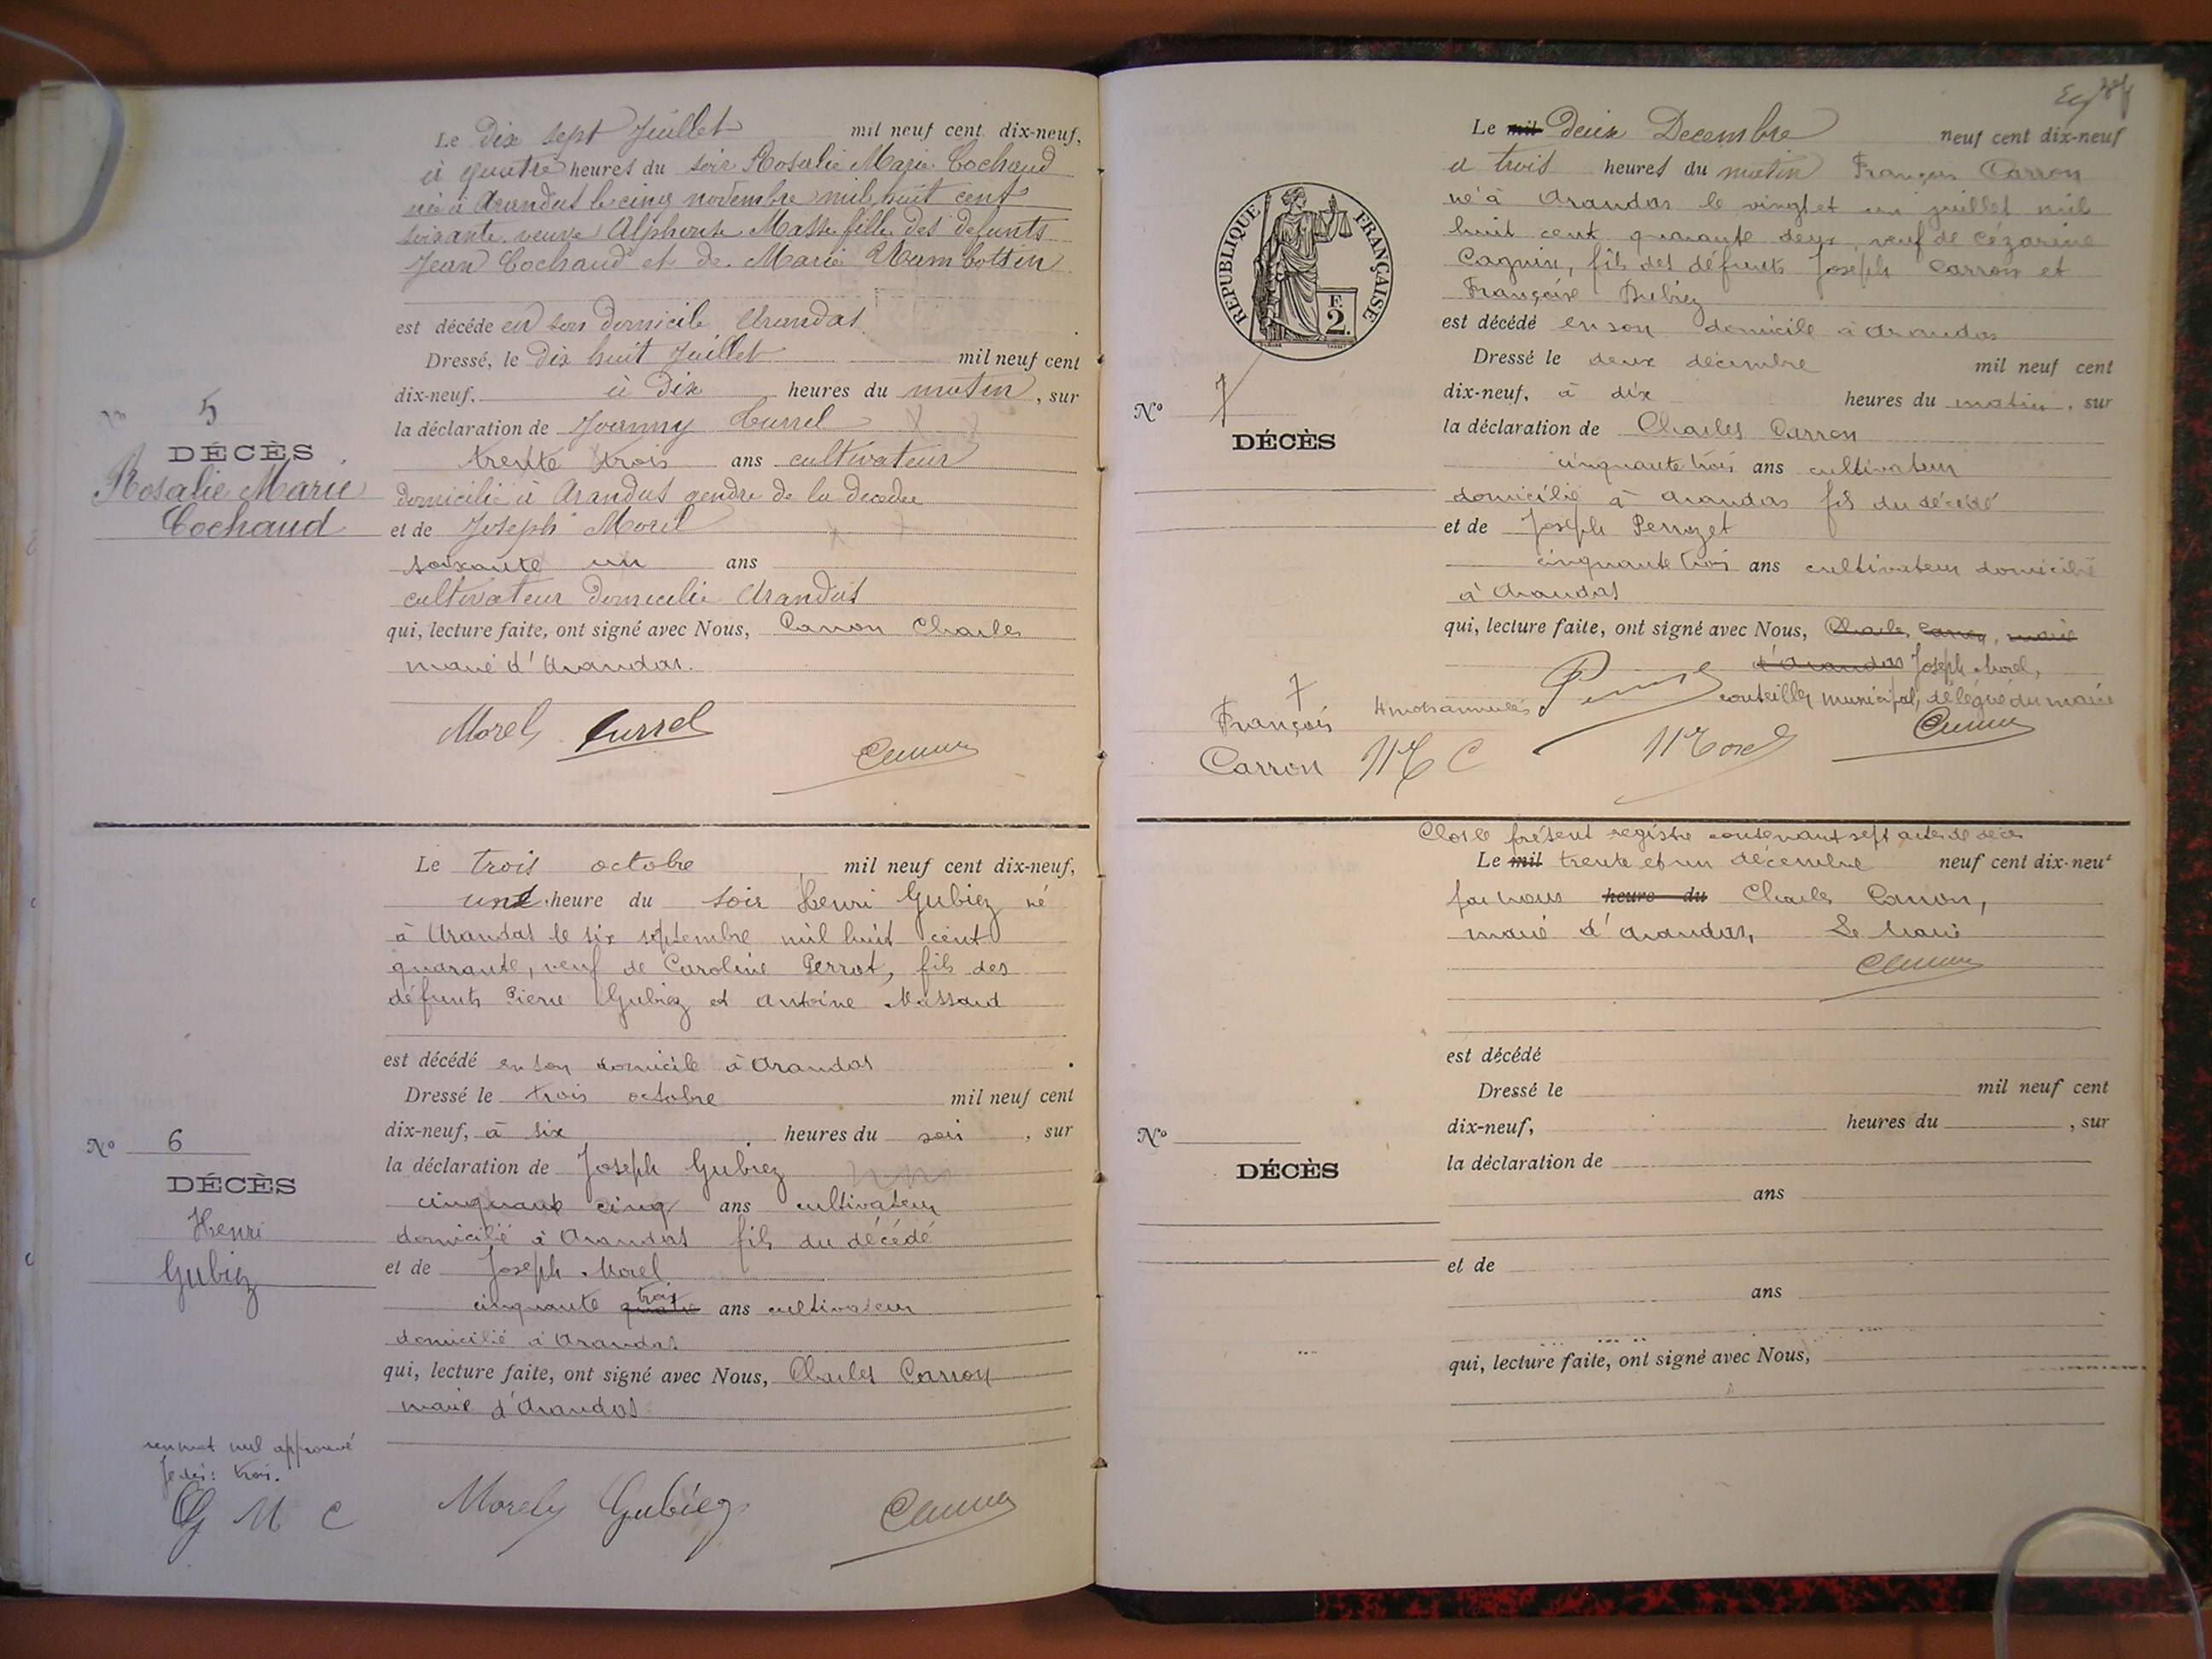 Le Dix sept Juillet mil neuf cent dix-neuf,
à quatre heures du soir Rosalie Marie Cochaud
née à Arandas le cinq novembre mil huit cent
soixante, veuve Alphonse Masse fille des defunts
Jean Cochaud et de Marie
est décédé en son domicile Arandas.
Dressé, le Dix huit Juillet mil neuf cent
dix-neuf, à Dix heures du matin, sur
la déclaration de Joanny Currel
trente trois ans cultivateur
domicilié à Arandas gendre de la decedee
et de Joseph Morel
soixante un ans
cultivateur domicilié Arandas
qui, lecture faite, ont signé avec Nous, Carron Charles
maire d'Arandas.
5
DÉCÈS
Rosalie Marie
Cochaud
Morel Currel
Le trois octobre mil neuf cent dix-neuf,
une heure du soir Henri Gubiez né
à Arandas le six septembre mil huit cent
quarante, veuf de Caroline Perrot, fils des
défunts Pierre Gubiez et Antoine Massard
est décédé en son domicile à Arandas.
Dressé le trois octobre mil neuf cent
dix-neuf, à six heures du soir, sur
la déclaration de Joseph Gubiez
cinquante cinq ans cultivateur
domicilié à Arandas fils du décédé
et de Joseph Morel
cinquante quatre trois ans cultivateur
domicilié à Arandas
qui, lecture faite, ont signé avec Nous, Charles Carron
maire d'Arandas
Nº 6
DÉCÈS
Henri
Gubiez
un mot nul approuvé
trois.
G M C
Morel Gubiez
Le mil Deux Decembre neuf cent dix-neuf
a trois heures du matin François Carron
né à Arandas le vingt et un juillet mil
huit cent quarante deux, veuf de Cézarine
Cagnin, fils des défunts Joseph Carron et
Françoise Dubiez
est décédé en son domicile à Arandas
Dressé le deux décembre mil neuf cent
dix-neuf, à dix heures du matin, sur
la déclaration de Charles Carron
cinquante trois ans cultivateur
domicilié à Arandas fils du décédé
et de Joseph Perrozet
cinquante trois ans cultivateur domicilié
à Arandas
qui, lecture faite, ont signé avec Nous, Charles Carron, maire
d'Arandas Joseph Morel,
conseiller municipal, délégué du maire
RÉPUBLIQUE FRANÇAISE
F.
2.
Nº 7
DÉCÈS
7
François
Carron
4 mots annulés
M C
Morel
Clos le présent registre contenant sept actes de décès
Le mil trente et un décembre neuf cent dix-neuf
par nous heure du Charles Carron,
maire d'Arandas, Le Maire
est décédé
Dressé le mil neuf cent
dix-neuf, heures du , sur
la déclaration de
ans
et de
ans
qui, lecture faite, ont signé avec Nous,
Nº
DÉCÈS